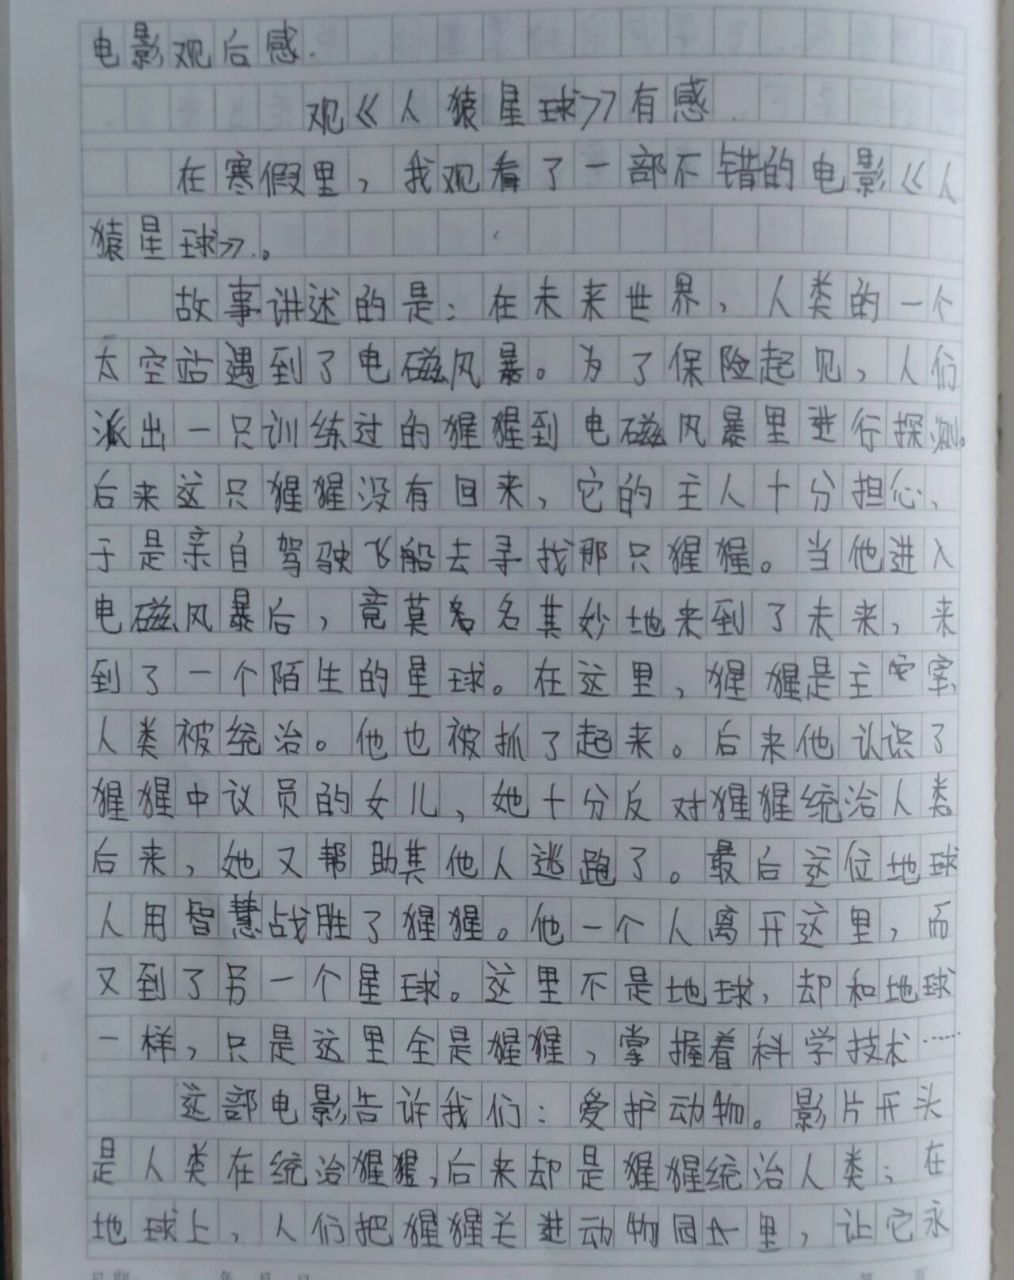 电影观后感.
观《人猿星球》有感
在寒假里，我观看了一部不错的电影《人
猿星球》。
故事讲述的是：在未来世界，人类的一个
太空站遇到了电磁风暴。为了保险起见，人们
派出一只训练过的猩猩到电磁风暴里进行探测。
后来这只猩猩没有回来，它的主人十分担心，
于是亲自驾驶飞船去寻找那只猩猩。当他进入
电磁风暴后，竟莫名名其妙地来到了未来，来
到了一个陌生的星球。在这里，猩猩是主宰，
人类被统治。他也被抓了起来。后来他认识了
猩猩中议员的女儿，她十分反对猩猩统治人类
后来，她又帮助其他人逃跑了。最后这位地球
人用智慧战胜了猩猩。他一个人离开这里，而
又到了另一个星球。这里不是地球，却和地球
一样，只是这里全是猩猩，掌握着科学技术……
这部电影告诉我们：爱护动物。影片开头
是人类在统治猩猩，后来却是猩猩统治人类；在
地球上，人们把猩猩关进动物园里，让它永